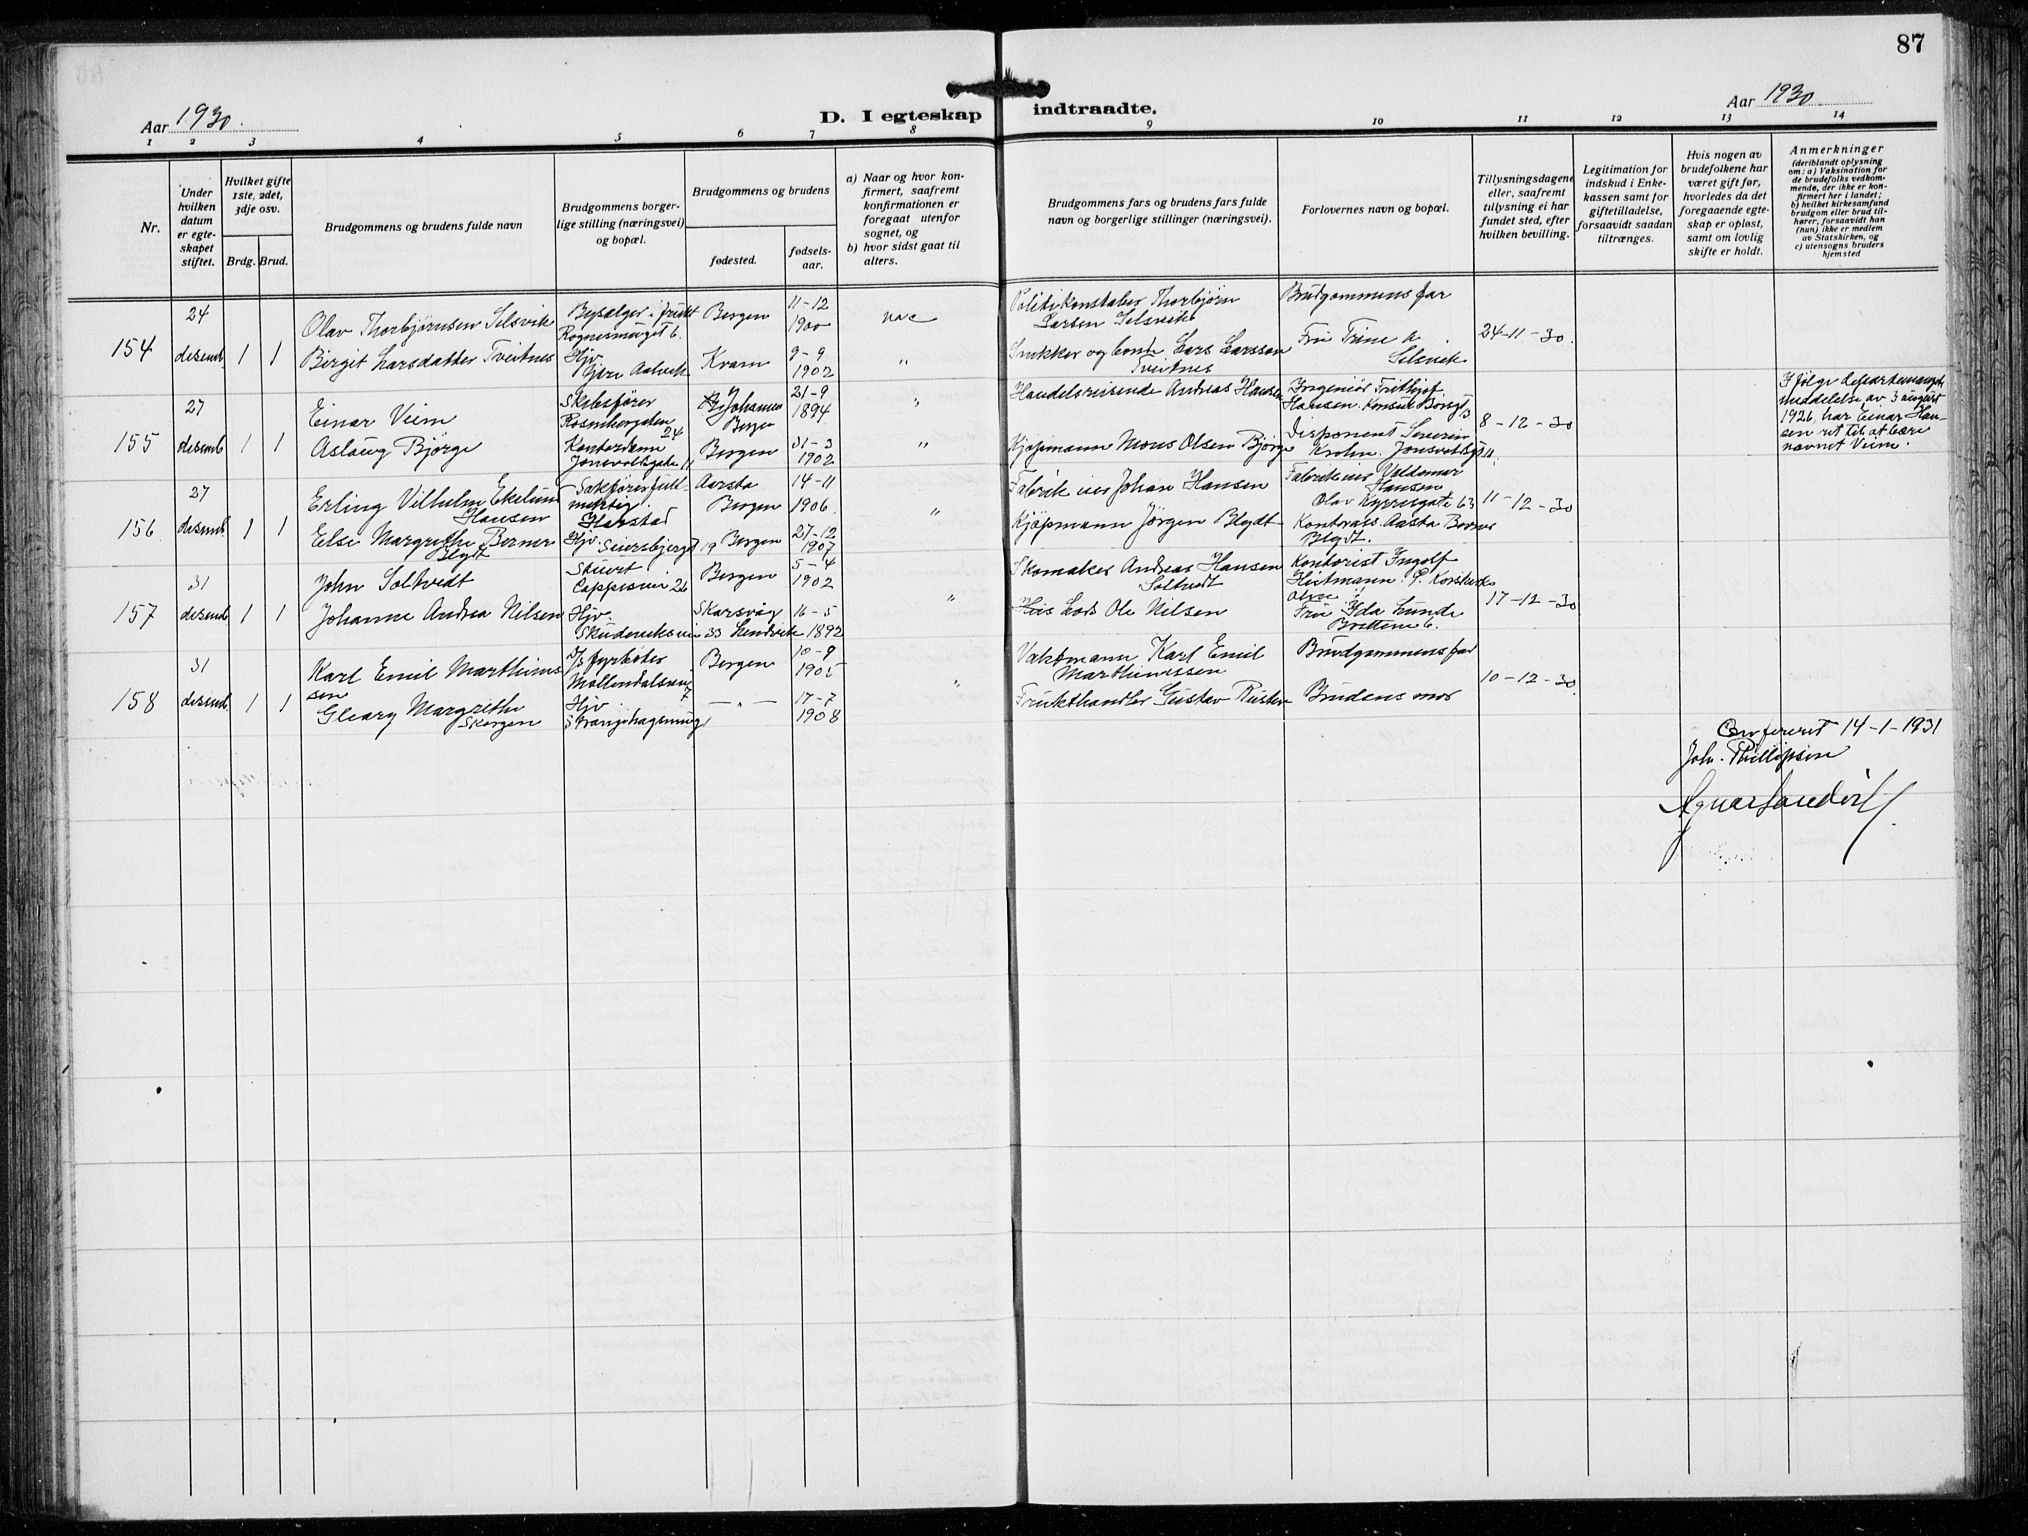 87
Aar 1930.
Aar 1930
D. I egteskap indtraadte.
1 2 3 4 5 6 7 8 9 10 11 12 13 14
Nr.
Under
hvilken
datum
er egte-
skapet
stiftet.
Hvilket gifte
1ste, 2det,
3dje osv.
Brdg. Brud.
Brudgommens og brudens fulde navn
Brudgommens borger-
lige stilling (næringsvei)
og bopæl.
Brudgommens og brudens
fødested.
fødsels-
aar.
a) Naar og hvor kon-
firmert, saafremt
konfirmationen er
foregaat utenfor
sognet, og
b) hvor sidst gaat til
alters.
Brudgommens fars og brudens fars fulde
navn og borgerlige stillinger (næringsvei).
Forlovernes navn og bopæl.
Tillysningsdagene
eller, saafremt
tillysning ei har
fundet sted, efter
hvilken bevilling.
Legitimation for
indskud i Enke-
kassen samt for
giftetilladelse,
forsaavidt saadan
tiltrænges.
Hvis nogen av
brudefolkene har
været gift før,
hvorledes da det
foregaaende egte-
skap er opløst,
samt om lovlig
skifte er holdt.
Anmerkninger
(deriblandt oplysning
om: a) Vaksination for
de brudefolks vedkom-
mende, der ikke er kon-
firmert her i landet;
b) hvilket kirkesamfund
brudgom eller brud til-
hører, forsaavidt han
(hun) ikke er medlem
av Statskirken, og
c) utensogns bruders
hjemsted
154
24
desemb.
1 1
Olav Thorbjørnsen Selsvik
Birgit Larsdatter Tveitnes
Bysælger i frukt
Rognesmuget 6.
Hjv
Øvre Aalvik
Bergen
Kvam
11-12
1900
9-9
1902
nei
"
Politikonstabel Thorbjørn
Larsen Selsvik
Snekker og bonde Lars Larsson
Tveitnes
Brudgommens far
Fru Trine
Selsvik
24-11-30.
155
27
desemb
1 1
Einar Veim
Aslaug Bjørge
Skibsfører
Rosenbergaten
24
Kontordame
Jonsvoldsgate 11
Johannes
Bergen
Bergen
21-9
1894
31-3
1902
"
"
Handelsreisende Andreas Hansen
Kjøpmann Mons Olsen Bjørge
Ingeniør Frithjof
Hansen. Konsul Børsgt 3
Disponent Severin
Krohn. Jonsvoldsgt 11.
8-12-30
Ifølge departemangets
meddelelse av 3 august
1926, har Einar Han-
sen ret til at bære
navnet Veim.
156
27
desemb
1 1
Erling Vilhelm Ekelund
Hansen
Else Margrethe Berner
Blydt
Sakførerfull-
mektig.
Harstad
Hjv
Seiersbjerget 19
Aarsta
Bergen
Bergen
14-11
1906.
27-12
1907
"
Fabrikeier Johan Hansen
Kjøpmann Jørgen Blydt
Fabrikeier Valdemar
Hansen
Olav Kyrresgate 63
Kontorass. Aasta Berner
Blydt.
11-12-30
157
31
desemb.
1 1
John Soltvedt
Johanne Andrea Nilsen
Skuret
Cappesvei 26
Hjv.
Skudeviksvei 33
Bergen
Skarsvåg
Lendvik
5-4
1902
16-5
1892
"
Skomaker Andreas Hansen
Soltvedt
Hus Lods Ole Nilsen
Kontorist Ingolf
Fru Ida Lunde
17-12-30
158
31
desemb.
1 1
Karl Emil Marthinus-
sen
Gleary Margrethe
Skergen
D/s fyrbøter
Møllendalsvei
7
Hjv
Strangehagsmug 1
Bergen
— " —
10-9
1905
17-7
1908
"
Vaktmann Karl Emil
Marthinussen
Frukthandler Gustav Rusten
Brudgommens far
Brudens mor
10-12-30.
Confereret 14-1-1931
Joh. Phillipsen